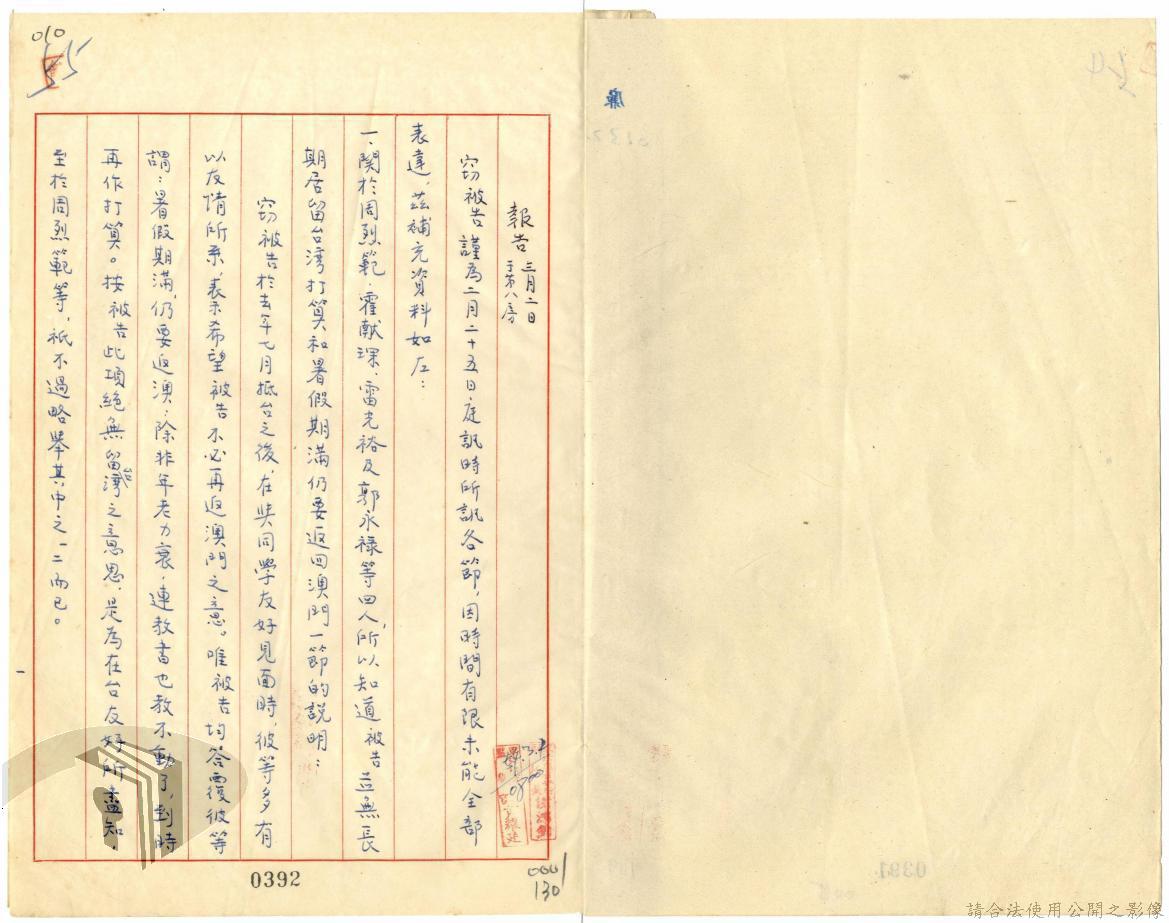 報告 三月二日
于第八房
竊被告謹為二月二十五日庭訊時所訊各節，因時間有限未能全部
表達，茲補充資料如左：
一、関於周烈範、霍献深、雷光裕及郭永禄等四人，所以知道被告並無長
期居留台湾打算和暑假期满仍要返回澳門一節的説明：
竊被告於去年七月抵台之後，在與同學友好見面時，彼等多有
以友情所系，表示希望被告不必再返澳門之意。唯被告均答覆彼等
謂：暑假期满，仍要返澳；除非年老力衰，連教書也教不動了，到時
再作打算。按被告此項絕無留台湾之意思，是為在台友好所盡知，
至於周烈範等，祇不過略舉其中之一二而已。
010
55
0392
0001
130
0391
請合法使用公開之影像